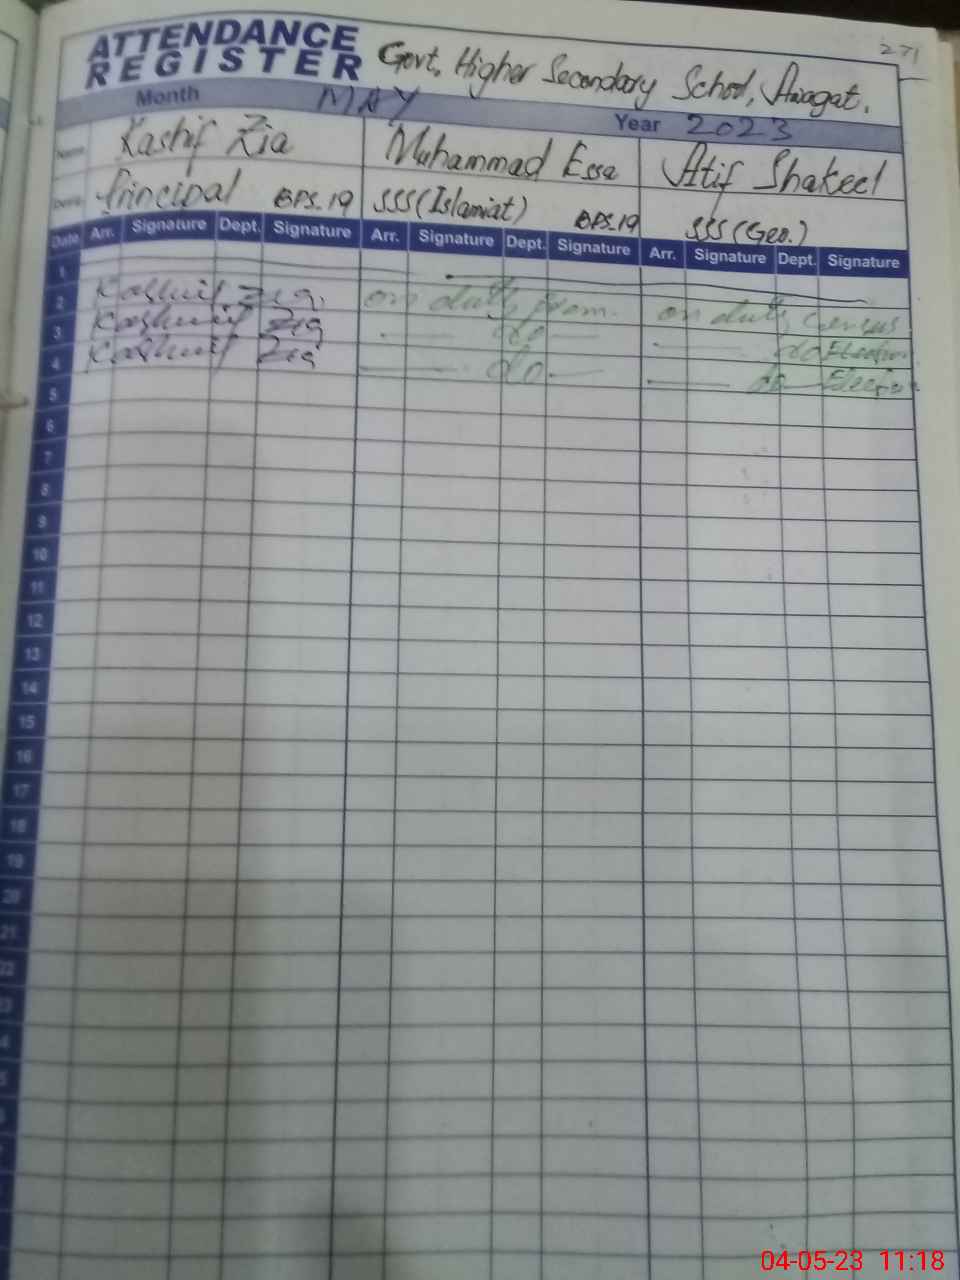 271
ATTENDANCE
REGISTER
Govt. Higher Secondary School, Awagat.
Month MAY Year 2023
Name Kashif Zia Muhammad Essa Atif Shakeel
Principal BPS.19 SSS(Islamiat) BPS.19 SSS(Geo.)
Date Arr. Signature Dept. Signature Arr. Signature Dept. Signature Arr. Signature Dept. Signature
1
2 Kashif Zia on duty from. on duty Census
3 Kashif Zia do do Election
4 Kashif Zia do do Election
5
6
7
8
9
10
11
12
13
14
15
16
17
18
19
20
21
22
23
4
5
04-05-23 11:18